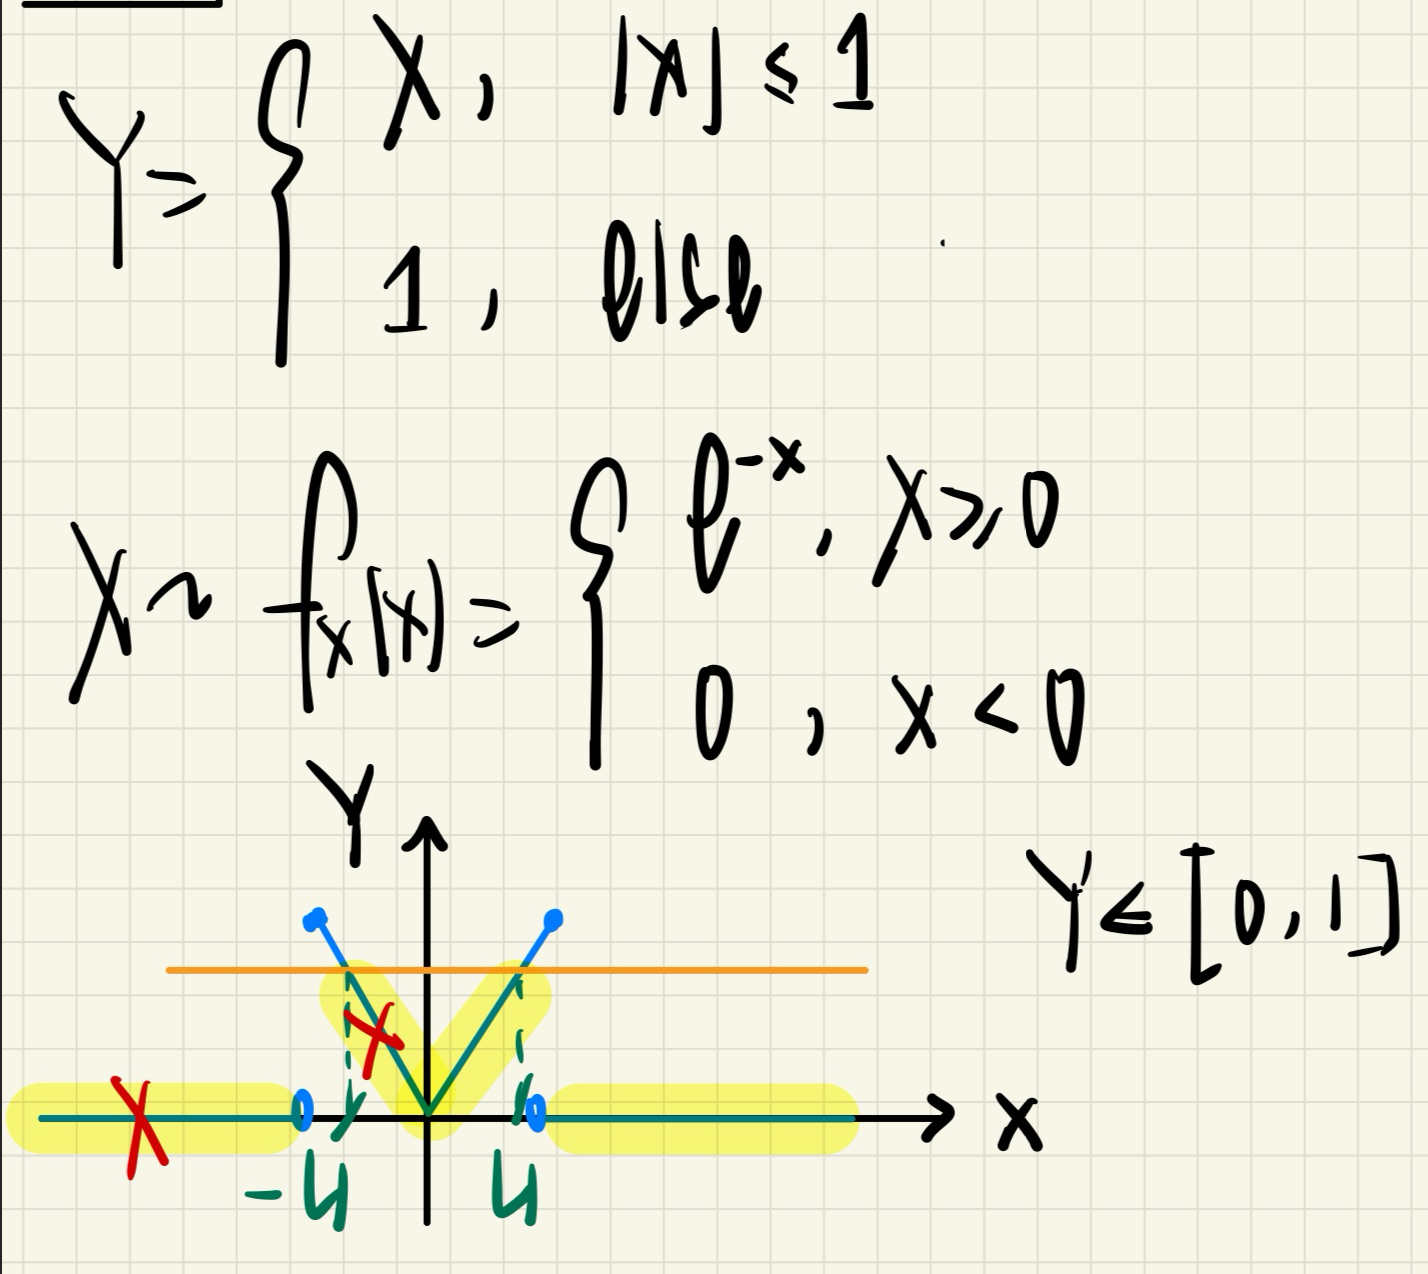 Y = { X, |X| ≤ 1
1, else
X ~ f_X(x) = { e^{-x}, x ≥ 0
0, x < 0
Y
Y ∈ [0, 1]
X
X
X
-y y